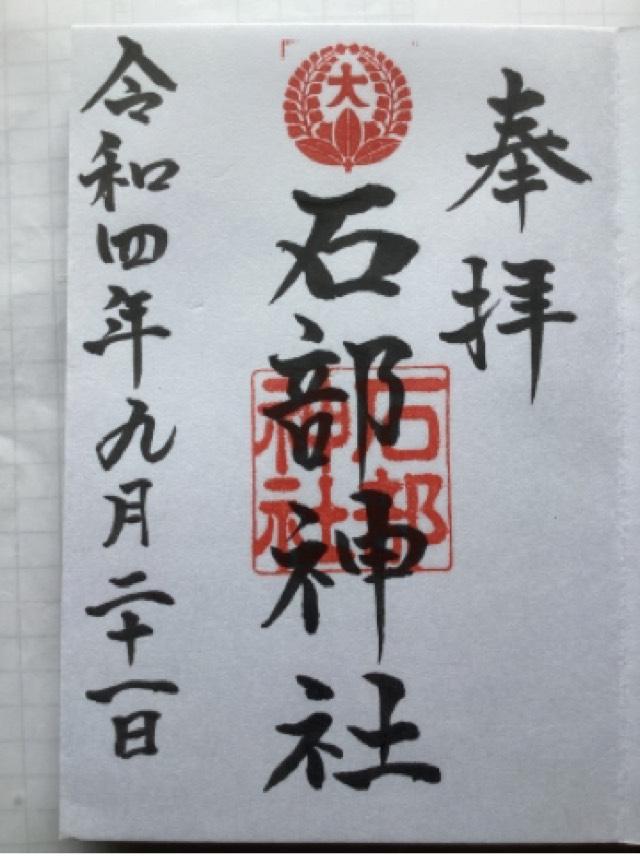 奉拝
大
石部神社
石部
神社
令和四年九月二十一日